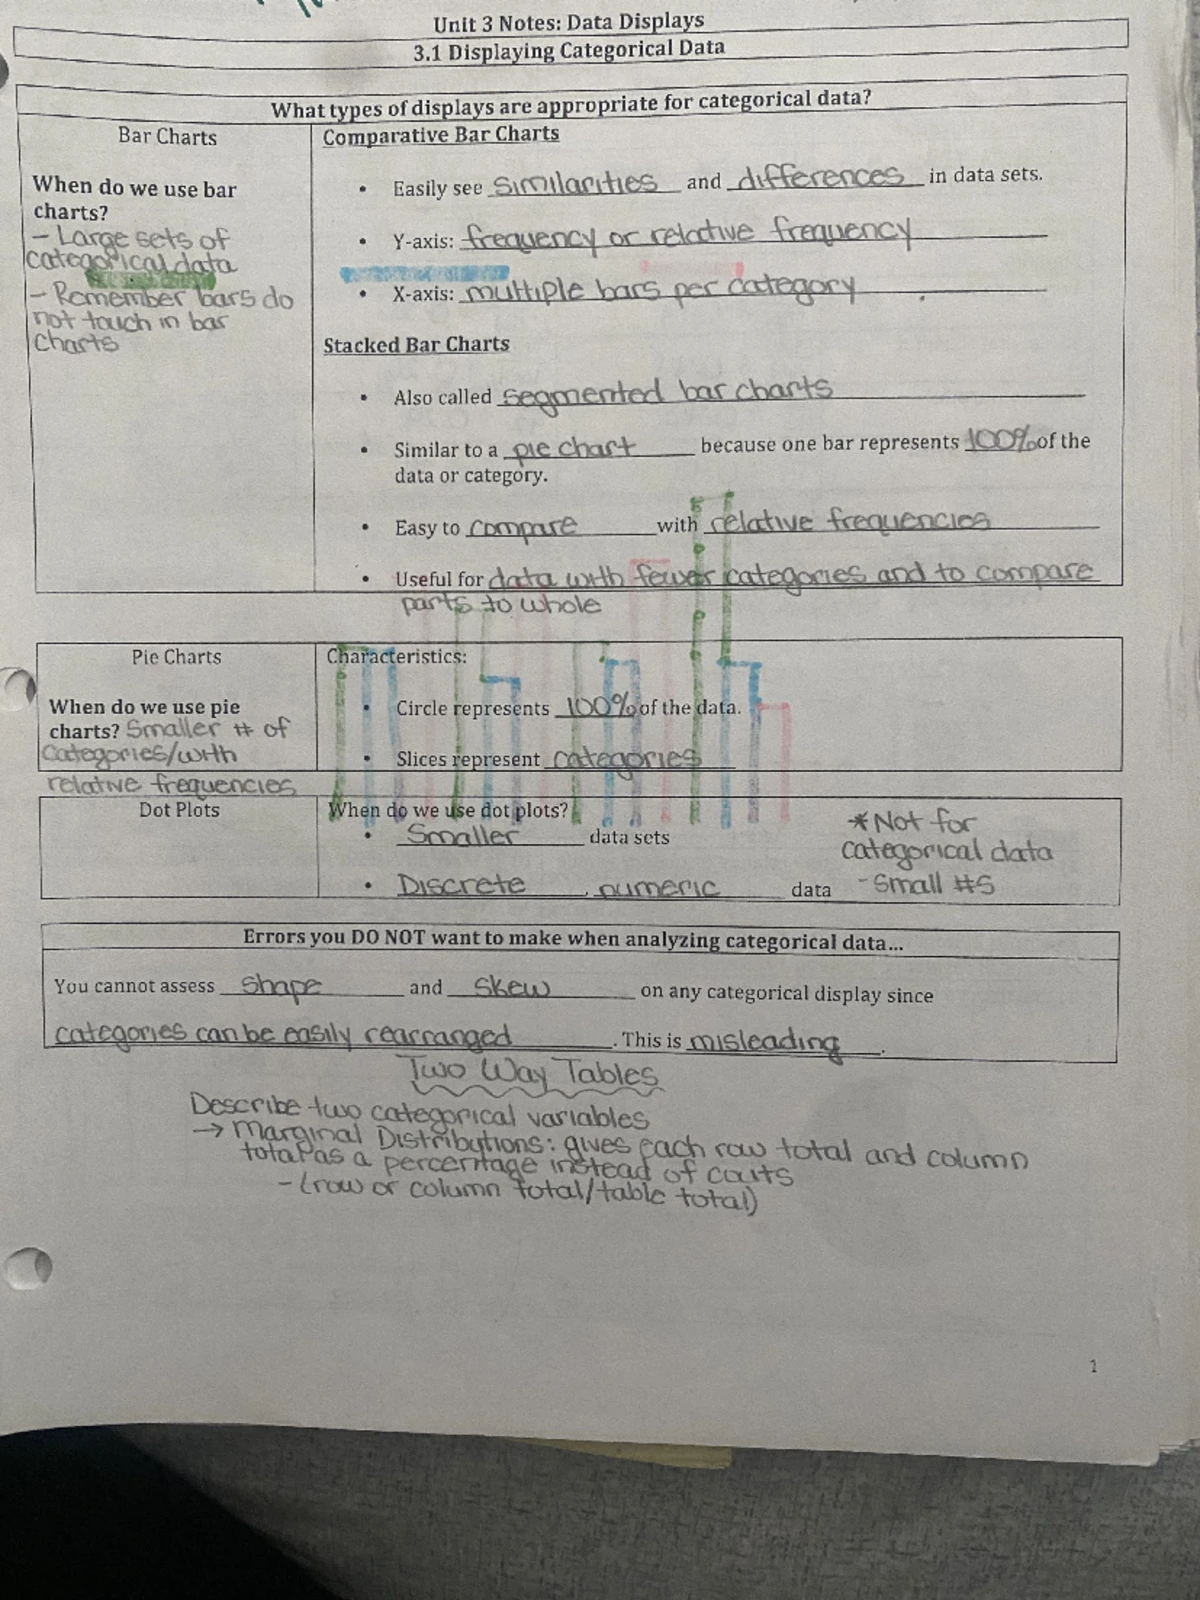 Unit 3 Notes: Data Displays
3.1 Displaying Categorical Data
What types of displays are appropriate for categorical data?
Bar Charts
When do we use bar
charts?
- Large sets of
categorical data
- Remember bars do
not touch in bar
charts
Comparative Bar Charts
• Easily see similarities and differences in data sets.
• Y-axis: frequency or relative frequency
• X-axis: multiple bars per category
Stacked Bar Charts
• Also called segmented bar charts
• Similar to a pie chart because one bar represents 100% of the
data or category.
• Easy to compare with relative frequencies
• Useful for data with fewer categories and to compare
parts to whole
Pie Charts
When do we use pie
charts? Smaller # of
categories/with
relative frequencies
Characteristics:
• Circle represents 100% of the data.
• Slices represent categories
Dot Plots
When do we use dot plots?
• Smaller data sets
• Discrete, numeric data
*Not for
categorical data
- Small #s
Errors you DO NOT want to make when analyzing categorical data...
You cannot assess shape and skew on any categorical display since
categories can be easily rearranged. This is misleading.
Two Way Tables
Describe two categorical variables
→ Marginal Distributions: gives each row total and column
total as a percentage instead of couts
- (row or column total/table total)
1